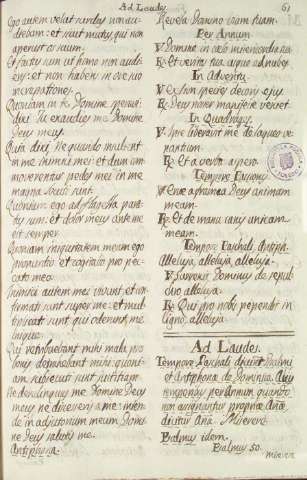 Ad Laudes 61
Ego autem velut surdus non audiebam: et sicut mutus qui non
aperuit os suum.
Et factus sum ut homo non audi
ens: et non habens in ore suo
increpationes.
Quoniam in te Domine speravi:
Domine
Deus meus.
Quia dixi, Ne quando
inimici mei: et dum com
moventur pedes mei in me
magna locuti sunt.
Quoniam ego ad flagella para
tus sum: et dolor meus ante me
est semper.
Quoniam iniquitatem meam ego
pronuntio et cogitabo pro pec
cato meo.
Inimici autem mei vivunt et con
firmati sunt super me: et mul
tiplicati sunt qui oderunt me
inique.
Qui retribuebant mihi mala pro
bonis detrahebant mihi quoni
am sustecut sunt justitiam.
Ne derelinquas me Domine Deus
meus ne discesseris a me: inten
de in adjutorium meum Domi
ne Deus salutis me.
Antiphona.
Revela Domino viam tuam.
Per Annum
V Domine in cælo misericordia tua.
R Et veritas tua usque ad nubes.
In Adventu.
V Ex Sion species decoris ejus.
R Deus noster manifeste veniet.
In Quadrages.
V Ipse liberavit me de laqueo ve
nantium.
R Et a verbo aspero.
Tempore Passionis.
V Erue a framea Deus animam
meam.
R Et de manu canis unicam
meam.
Tempore Paschali Antiph.
Alleluja, alleluja, alleluja.
V Surrexit Dominus de sepul
chro alleluja.
R Qui pro nobis pependit in
ligno alleluja.
Ad Laudes.
Tempore Paschali dicuntur Psalmi
et Antiphonæ de Dominica,
per Annum quando
non assignantur propriæ Aña
dicitur Aña. Miserere.
Psalmus idem.
Psalmus 50.
Miserere